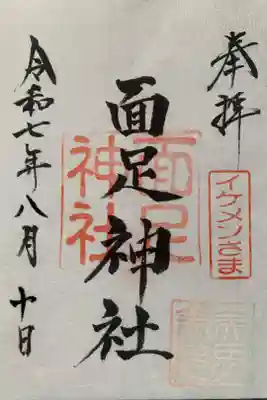 奉拝
イケメンさま
面足神社
面足神社
令和七年八月十日